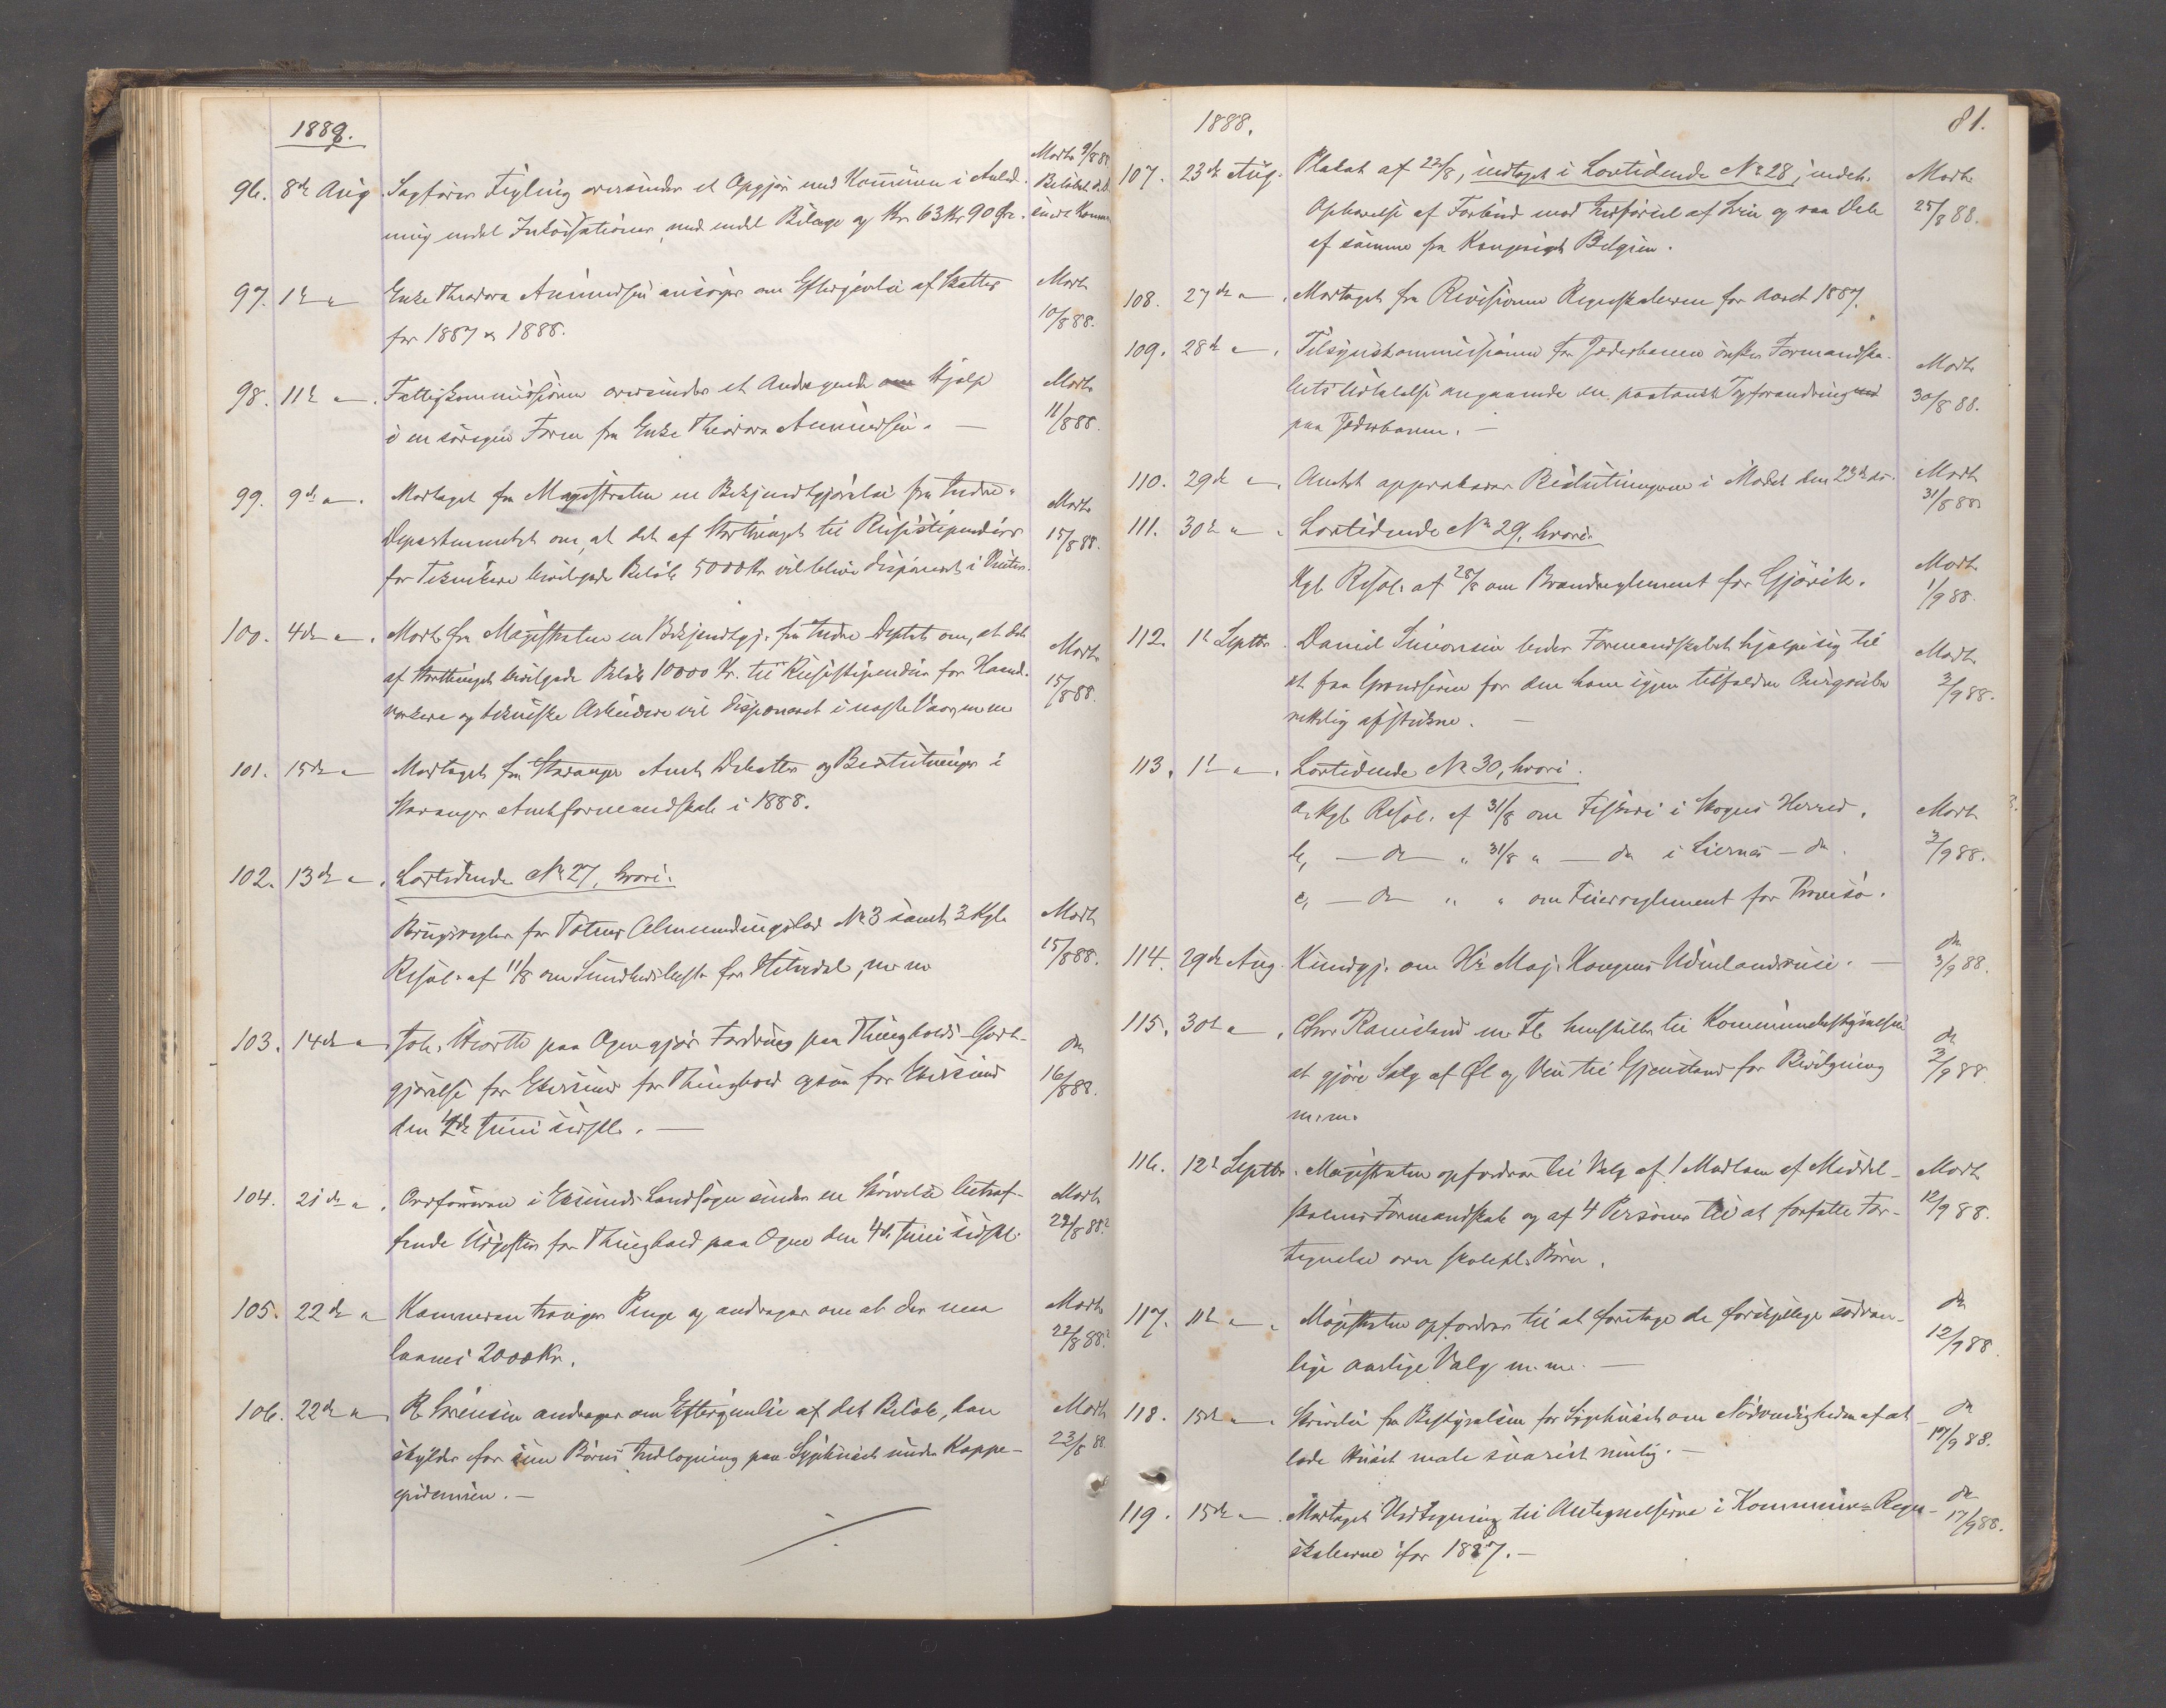 1888.
96. 8de Aug. Sagfører Feyling oversender et Opgjør med Kommunen i Anled- Modt. 9/8 88
ning endel Inkassationer, med endel Bilage og Kr. 63 Kr 90 Øre.
97. 1ste " Enke Theodora Amundsen ansøger om Eftergivelse af Skatter Modt.
for 1887 & 1888. 10/8 88.
98. 11te " Fattigkommissionen oversender et Andragende om Hjælp Modt.
i en søregen Form fra Enke Theodora Amundsen. — 11/8 88.
99. 9de " Modtaget fra Magistraten en Bekjendtgjørelse fra Indre- Modt.
Departementet om, at det af Storthinget til Reisestipendier 15/8 88.
for Teknikere bevilgede Beløb 5000 Kr vil blive disponeret i Vinter.
100. 4de " Modt. fra Magistraten en Bekjendtgj. fra Indre Deptet om, at det Modt.
af Storthinget bevilgede Beløb 10000 Kr. til Reisestipendier for Haand- 15/8 88.
værkere og tekniske Arbeidere vil disponeret i næste Vaar, m.m.
101. 15de " Modtaget fra Stavanger Amt Debatter og Beslutninger i
Stavanger Amtsformandskab i 1888.
102. 13de " Lovtidende No 27, hvori:
Brugsregler for Totens Almenningslod No 3 samt 3 Kgl. Modt.
Resol. af 11/8 om Sundheds for Hitterdal, m.m. 15/8 88.
103. 14de " Joh. paa Ogne gjør Fordring paa Thingholds-Godt- do
gjørelse for Ekersund for Thinghold ogsaa for Ekersund 16/8 88.
den 4de Juni sidstl. —
104. 21de " Ordføreren i Egersunds Landsogn sender en Skrivelse betræf- Modt.
fende Udgifter for Thinghold paa Ogne den 4de Juni sidstl. 22/8 88.
105. 22de " Kæmneren trænger Penge og andrager om at der maa Modt.
laanes 2000 Kr. 22/8 88.
106. 22de " R. Sørensen andrager om Eftergivelse af det Beløb, han Modt.
skylder for sine Børns Indlægning paa Sygehuset under Koppe- 23/8 88.
epidemien. —
1888. 81.
107. 23de Aug. Plakat af 22/8, indtaget i Lovtidende No 28, indeh. Modt.
Ophævelse af Forbud mod Indførsel af Svin og raa Dele 25/8 88.
af samme fra Kongeriget Belgien.
108. 27de " Modtaget fra Revisionen Regnskaberne for Aaret 1887.
109. 28de " Tilsynskommissionen for Jæderbanen ønsker Formandska- Modt.
bets Udtalelse angaaende en paatænkt Togforandring 30/8 88.
paa Jæderbanen. —
110. 29de " Amtet approberer Beslutningerne i Mødet den 23de ds. Modt.
31/8 88.
111. 30te " Lovtidende No 29, hvori:
Kgl. Resol. af 28/8 om Brandreglement for Gjøvik. Modt.
1/9 88.
112. 1ste Septbr. Daniel Simonsen beder Formandskabet hjælpe sig til Modt.
at faa Grændserne for den ham igjen tilfaldne 3/9 88.
rettelig afstukne. —
113. 1ste " Lovtidende No 30, hvori:
a, Kgl. Resol. af 31/8 om Fiskeri i Skogns Herred. Modt.
b, — do — " 31/8 " — do i Liernæs — do. 3/9 88.
c, — do — " " om Feierreglement for Tromsø.
114. 29de Aug. Kundgj. om Hs. Maj. Kongens Udenlandsreise. — do
3/9 88.
115. 30te " Chr. Ramsland m. Fl. henstiller til Kommunebestyrelsen do
at gjøre Salg af Øl og Vin til Gjenstand for Bevilgning 3/9 88
m.m.
116. 12te Septbr. Magistraten opfordrer til Valg af 1 Medlem af Middel- Modt.
skolens Formandskab og af 4 Personer til at forfatte For- 12/9 88.
tegnelse over skolepl. Børn.
117. 11te " Magistraten opfordrer til at foretage de forskjellige sædvan- do
lige aarlige Valg m.m. — 12/9 88.
118. 15de " Skrivelse fra Bestyrelsen for Sygehuset om Nødvendigheden af at do
lade Huset male snarest mulig. — 17/9 88.
119. 15de " Modtaget Udtegning til Antegnelserne i Kommune-Regn- do
skaberne for 1887. — 17/9 88.